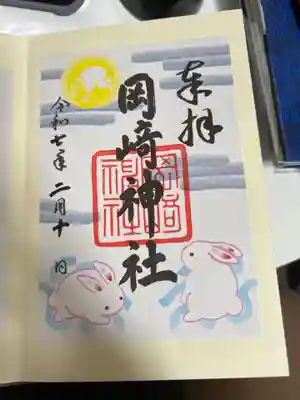 奉拝
岡﨑神社
岡崎神社
令和七年二月十日